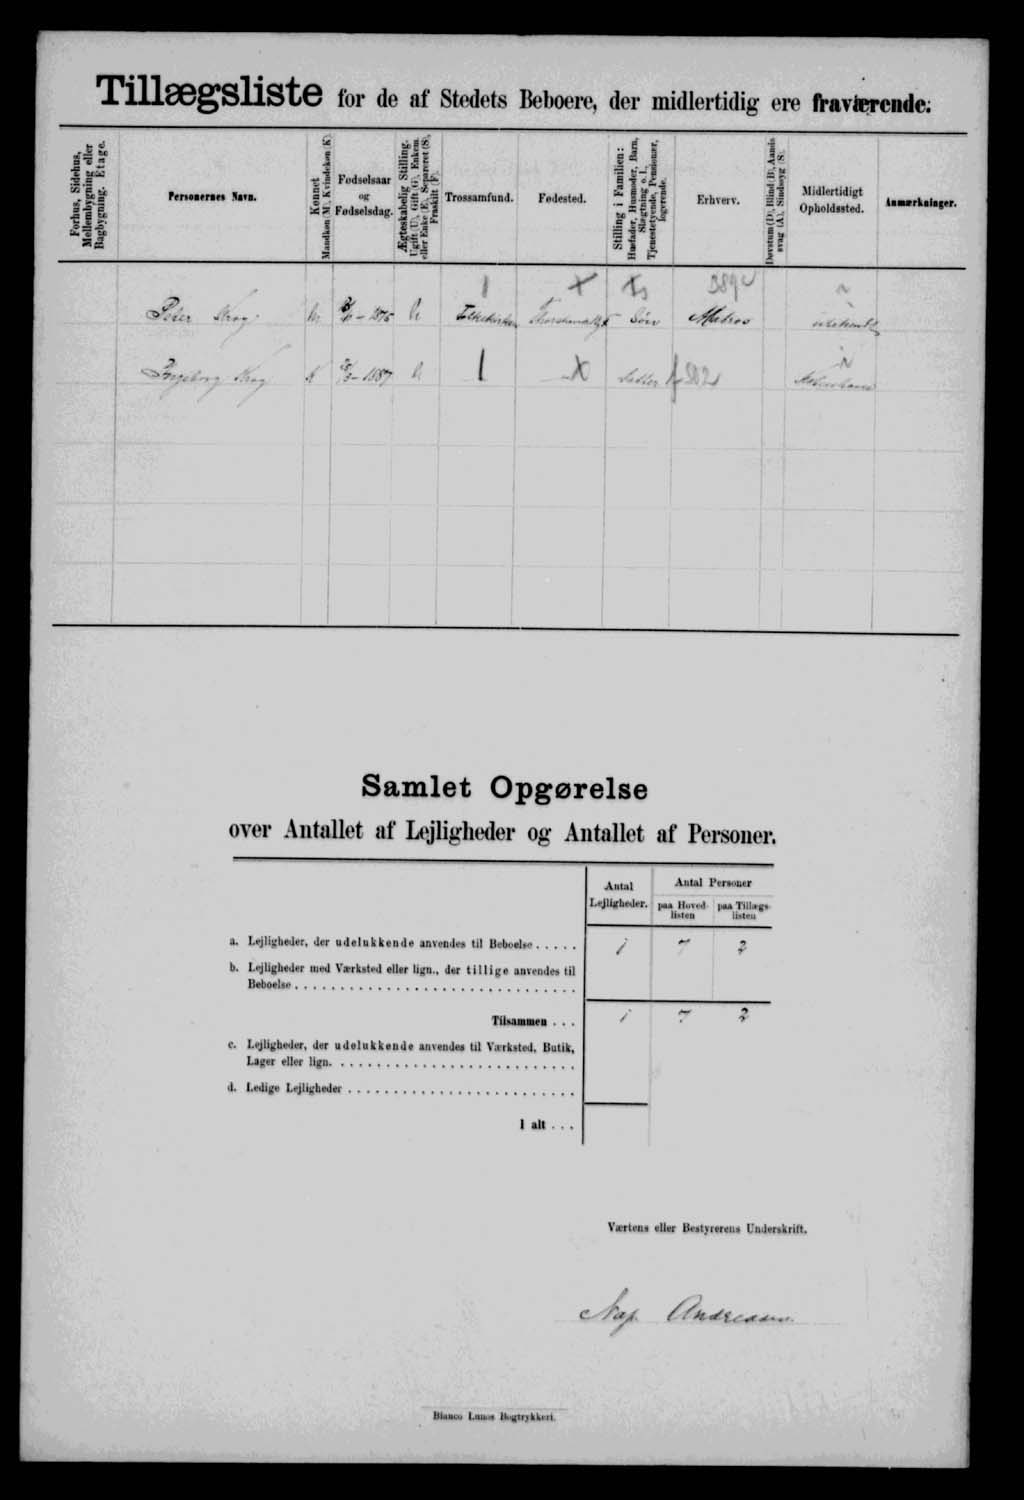 Tillægsliste for de af Stedets Beboere, der midlertidig ere fraværende:
Forhus, Sidehus, Mellembygning eller Bagbygning. Etage.
Personernes Navn.
Kønnet
Mandkøn (M), Kvindekøn (K).
Fødselsaar og Fødselsdag.
Ægteskabelig Stilling.
Ugift (U), Gift (G), Enkem. eller Enke (E), Separeret (S), Fraskilt (F).
Trossamfund.
Fødested.
Stilling i Familien:
Husfader, Husmoder, Barn, Slægtning o. l., Tjenestetyende, Pensionær, logerende.
Erhverv.
Døvstum (D), Blind (B), Aandssvag (A), Sindssyg (S).
Midlertidigt Opholdssted.
Anmærkninger.
Peter Krog M 1875 U Folkekirken Søn Matros ubekendt
Ingeborg Krog K 1887 U Datter
Samlet Opgørelse
over Antallet af Lejligheder og Antallet af Personer.
Antal Lejligheder.
Antal Personer
paa Hovedlisten
paa Tillægslisten
a. Lejligheder, der udelukkende anvendes til Beboelse ..... 1 7 2
b. Lejligheder med Værksted eller lign., der tillige anvendes til
Beboelse
Tilsammen ... 1 7 2
c. Lejligheder, der udelukkende anvendes til Værksted, Butik,
Lager eller lign.
d. Ledige Lejligheder
I alt ...
Værtens eller Bestyrerens Underskrift.
Nap. Andreasen.
Bianco Lunos Bogtrykkeri.